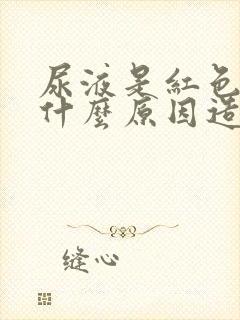 尿液是紅色
什麼原因造
缝心